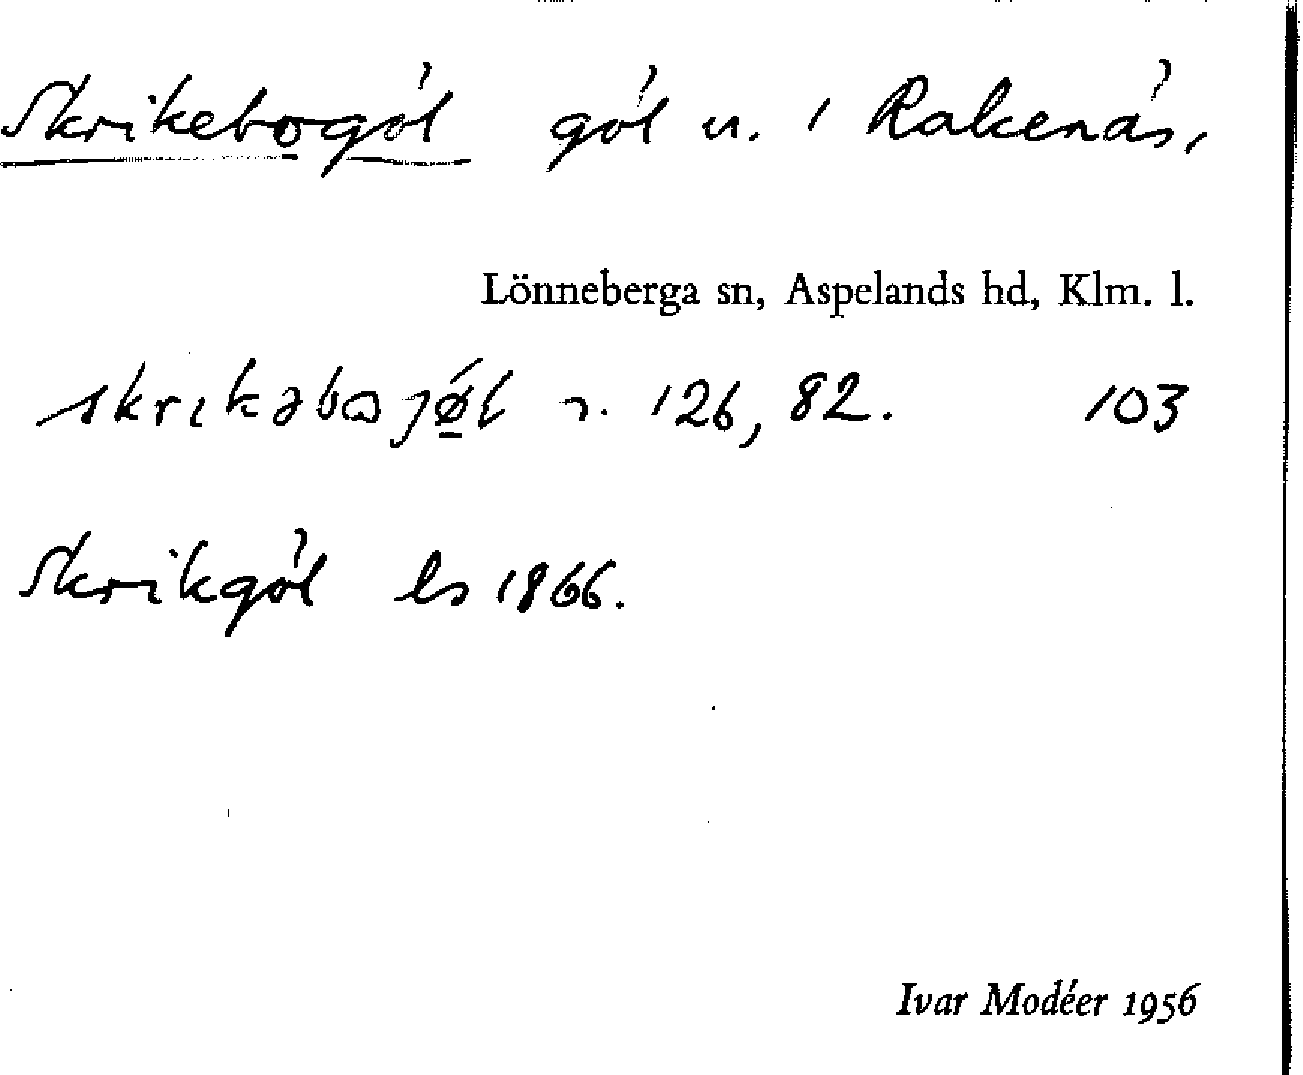 Skrikebogöl göl n. i Rakenäs,
Lönneberga sn, Aspelands hd, Klm. l.
126, 82. 103
Skrikgöl ls 1866.
Ivar Modéer 1956